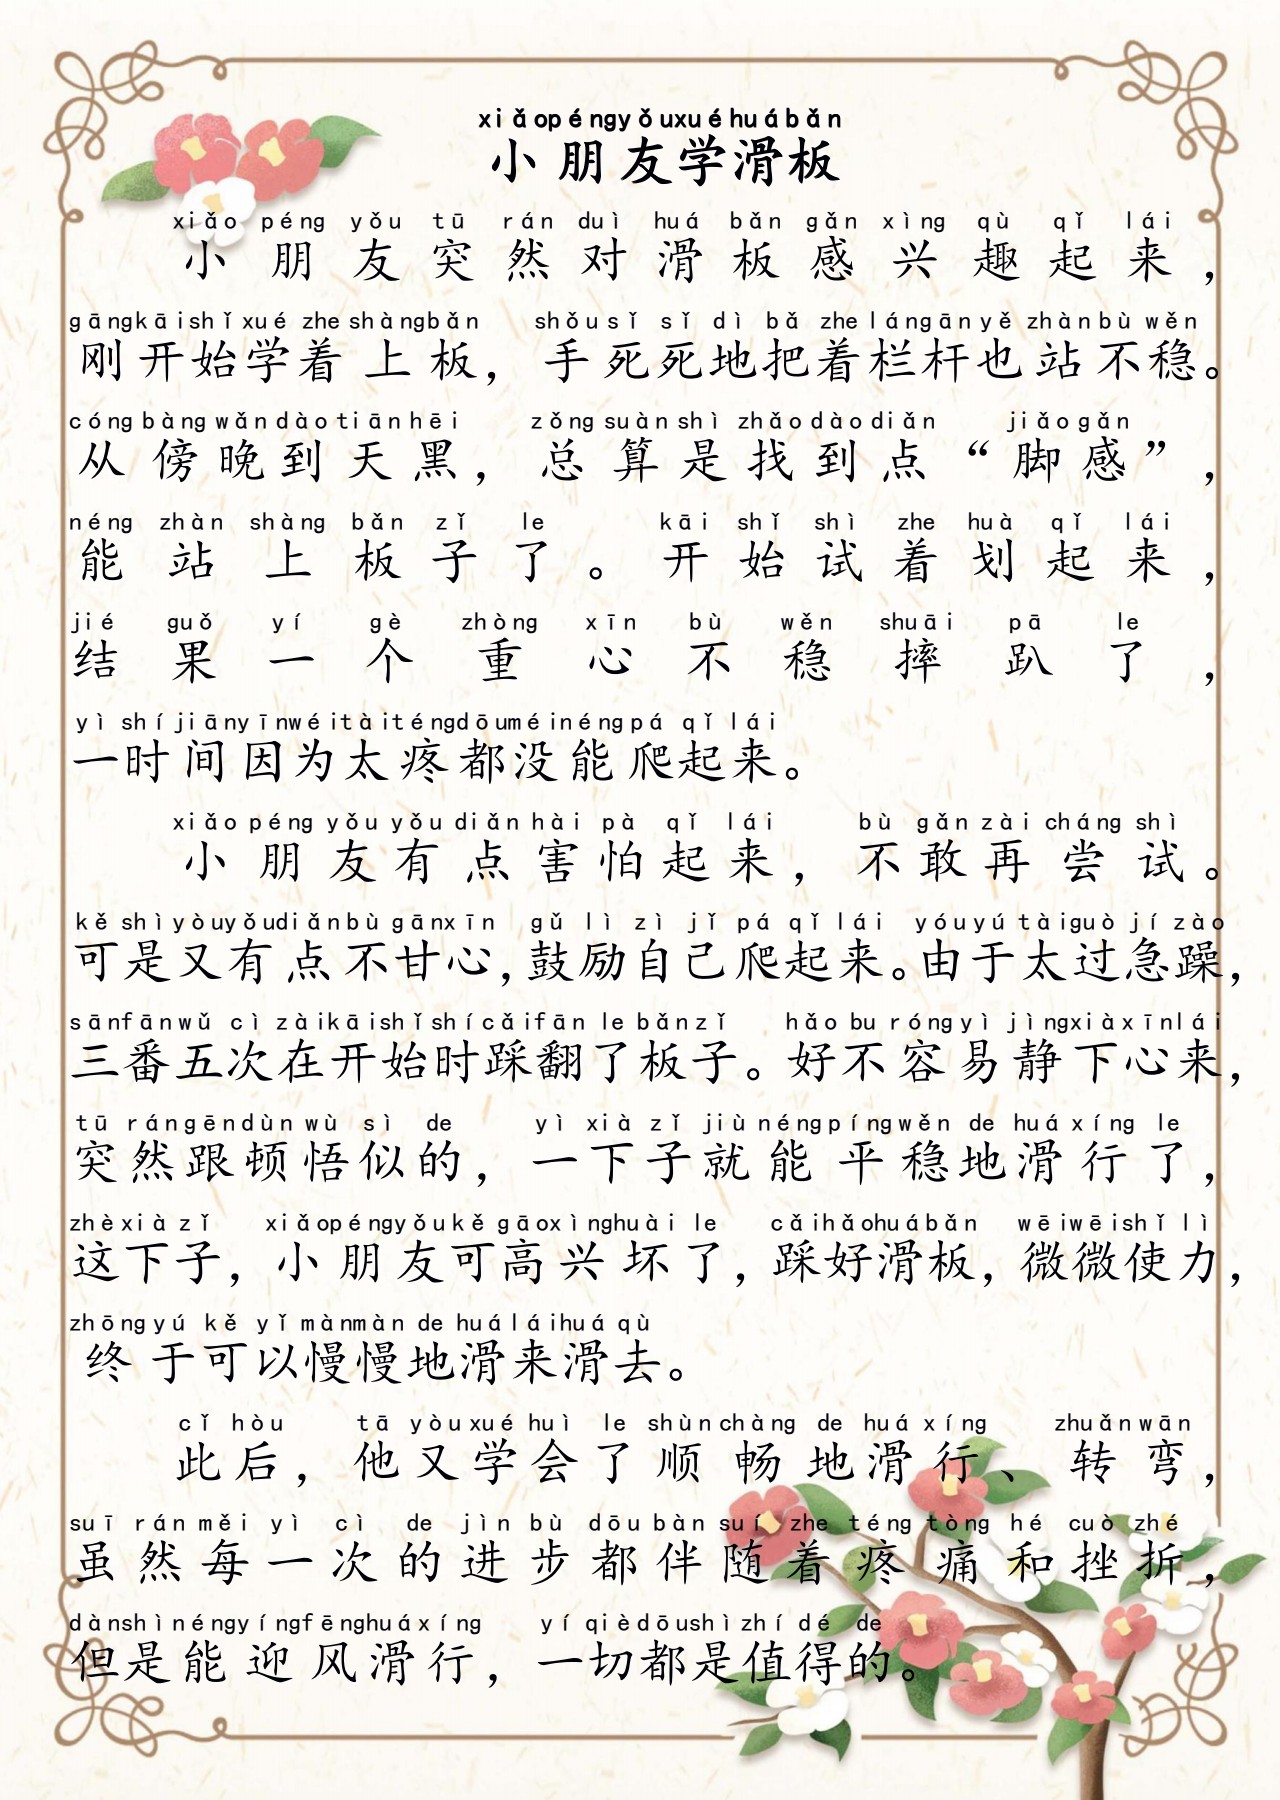 xiǎopéngyǒuxuéhuábǎn
小朋友学滑板
xiǎo péng yǒu tū rán duì huá bǎn gǎn xìng qù qǐ lái
小朋友突然对滑板感兴趣起来，
gāngkāishǐxué zhe shàngbǎn shǒu sǐ sǐ dì bǎ zhe lángān yě zhàn bù wěn
刚开始学着上板，手死死地把着栏杆也站不稳。
cóng bàng wǎn dào tiān hēi zǒng suàn shì zhǎo dào diǎn jiǎo gǎn
从傍晚到天黑，总算是找到点“脚感”，
néng zhàn shàng bǎn zǐ le kāi shǐ shì zhe huà qǐ lái
能站上板子了。开始试着划起来，
jié guǒ yí gè zhòng xīn bù wěn shuāi pā le
结果一个重心不稳摔趴了，
yì shí jiān yīn wéi tài téng dōu méi néng pá qǐ lái
一时间因为太疼都没能爬起来。
xiǎo péng yǒu yǒu diǎn hài pà qǐ lái bù gǎn zài cháng shì
小朋友有点害怕起来，不敢再尝试。
kě shì yòu yǒu diǎn bù gān xīn gǔ lì zì jǐ pá qǐ lái yóu yú tài guò jí zào
可是又有点不甘心，鼓励自己爬起来。由于太过急躁，
sān fān wǔ cì zài kāi shǐ shí cǎi fān le bǎn zǐ hǎo bu róng yì jìng xià xīn lái
三番五次在开始时踩翻了板子。好不容易静下心来，
tū rán gēn dùn wù sì de yì xià zǐ jiù néng píng wěn de huá xíng le
突然跟顿悟似的，一下子就能平稳地滑行了，
zhè xià zǐ xiǎo péng yǒu kě gāo xìng huài le cǎi hǎo huá bǎn wēi wēi shǐ lì
这下子，小朋友可高兴坏了，踩好滑板，微微使力，
zhōng yú kě yǐ màn màn de huá lái huá qù
终于可以慢慢地滑来滑去。
cǐ hòu tā yòu xué huì le shùn chàng de huá xíng zhuǎn wān
此后，他又学会了顺畅地滑行、转弯，
suī rán měi yì cì de jìn bù dōu bàn suí zhe téng tòng hé cuò zhé
虽然每一次的进步都伴随着疼痛和挫折，
dàn shì néng yíng fēng huá xíng yí qiè dōu shì zhí dé de
但是能迎风滑行，一切都是值得的。